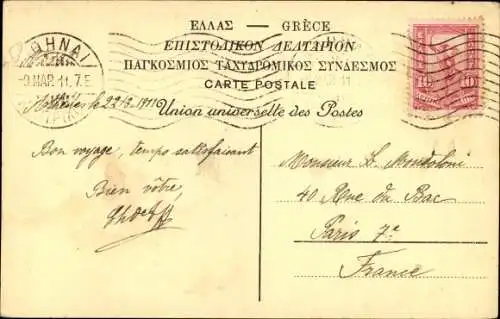 ΕΛΛΑΣ — GRÈCE
ΕΠΙΣΤΟΛΙΚΟΝ ΔΕΛΤΑΡΙΟΝ
ΠΑΓΚΟΣΜΙΟΣ ΤΑΧΥΔΡΟΜΙΚΟΣ ΣΥΝΔΕΣΜΟΣ
CARTE POSTALE
Union universelle des Postes
ΑΘΗΝΑΙ
ΜΑΡ. 11. 7.Ε
10 10
Athènes le 22/3 1911
Bon voyage, temps satisfaisant
Bien vôtre,
Monsieur L. Mondoloni
40 Rue du Bac
Paris 7e
France